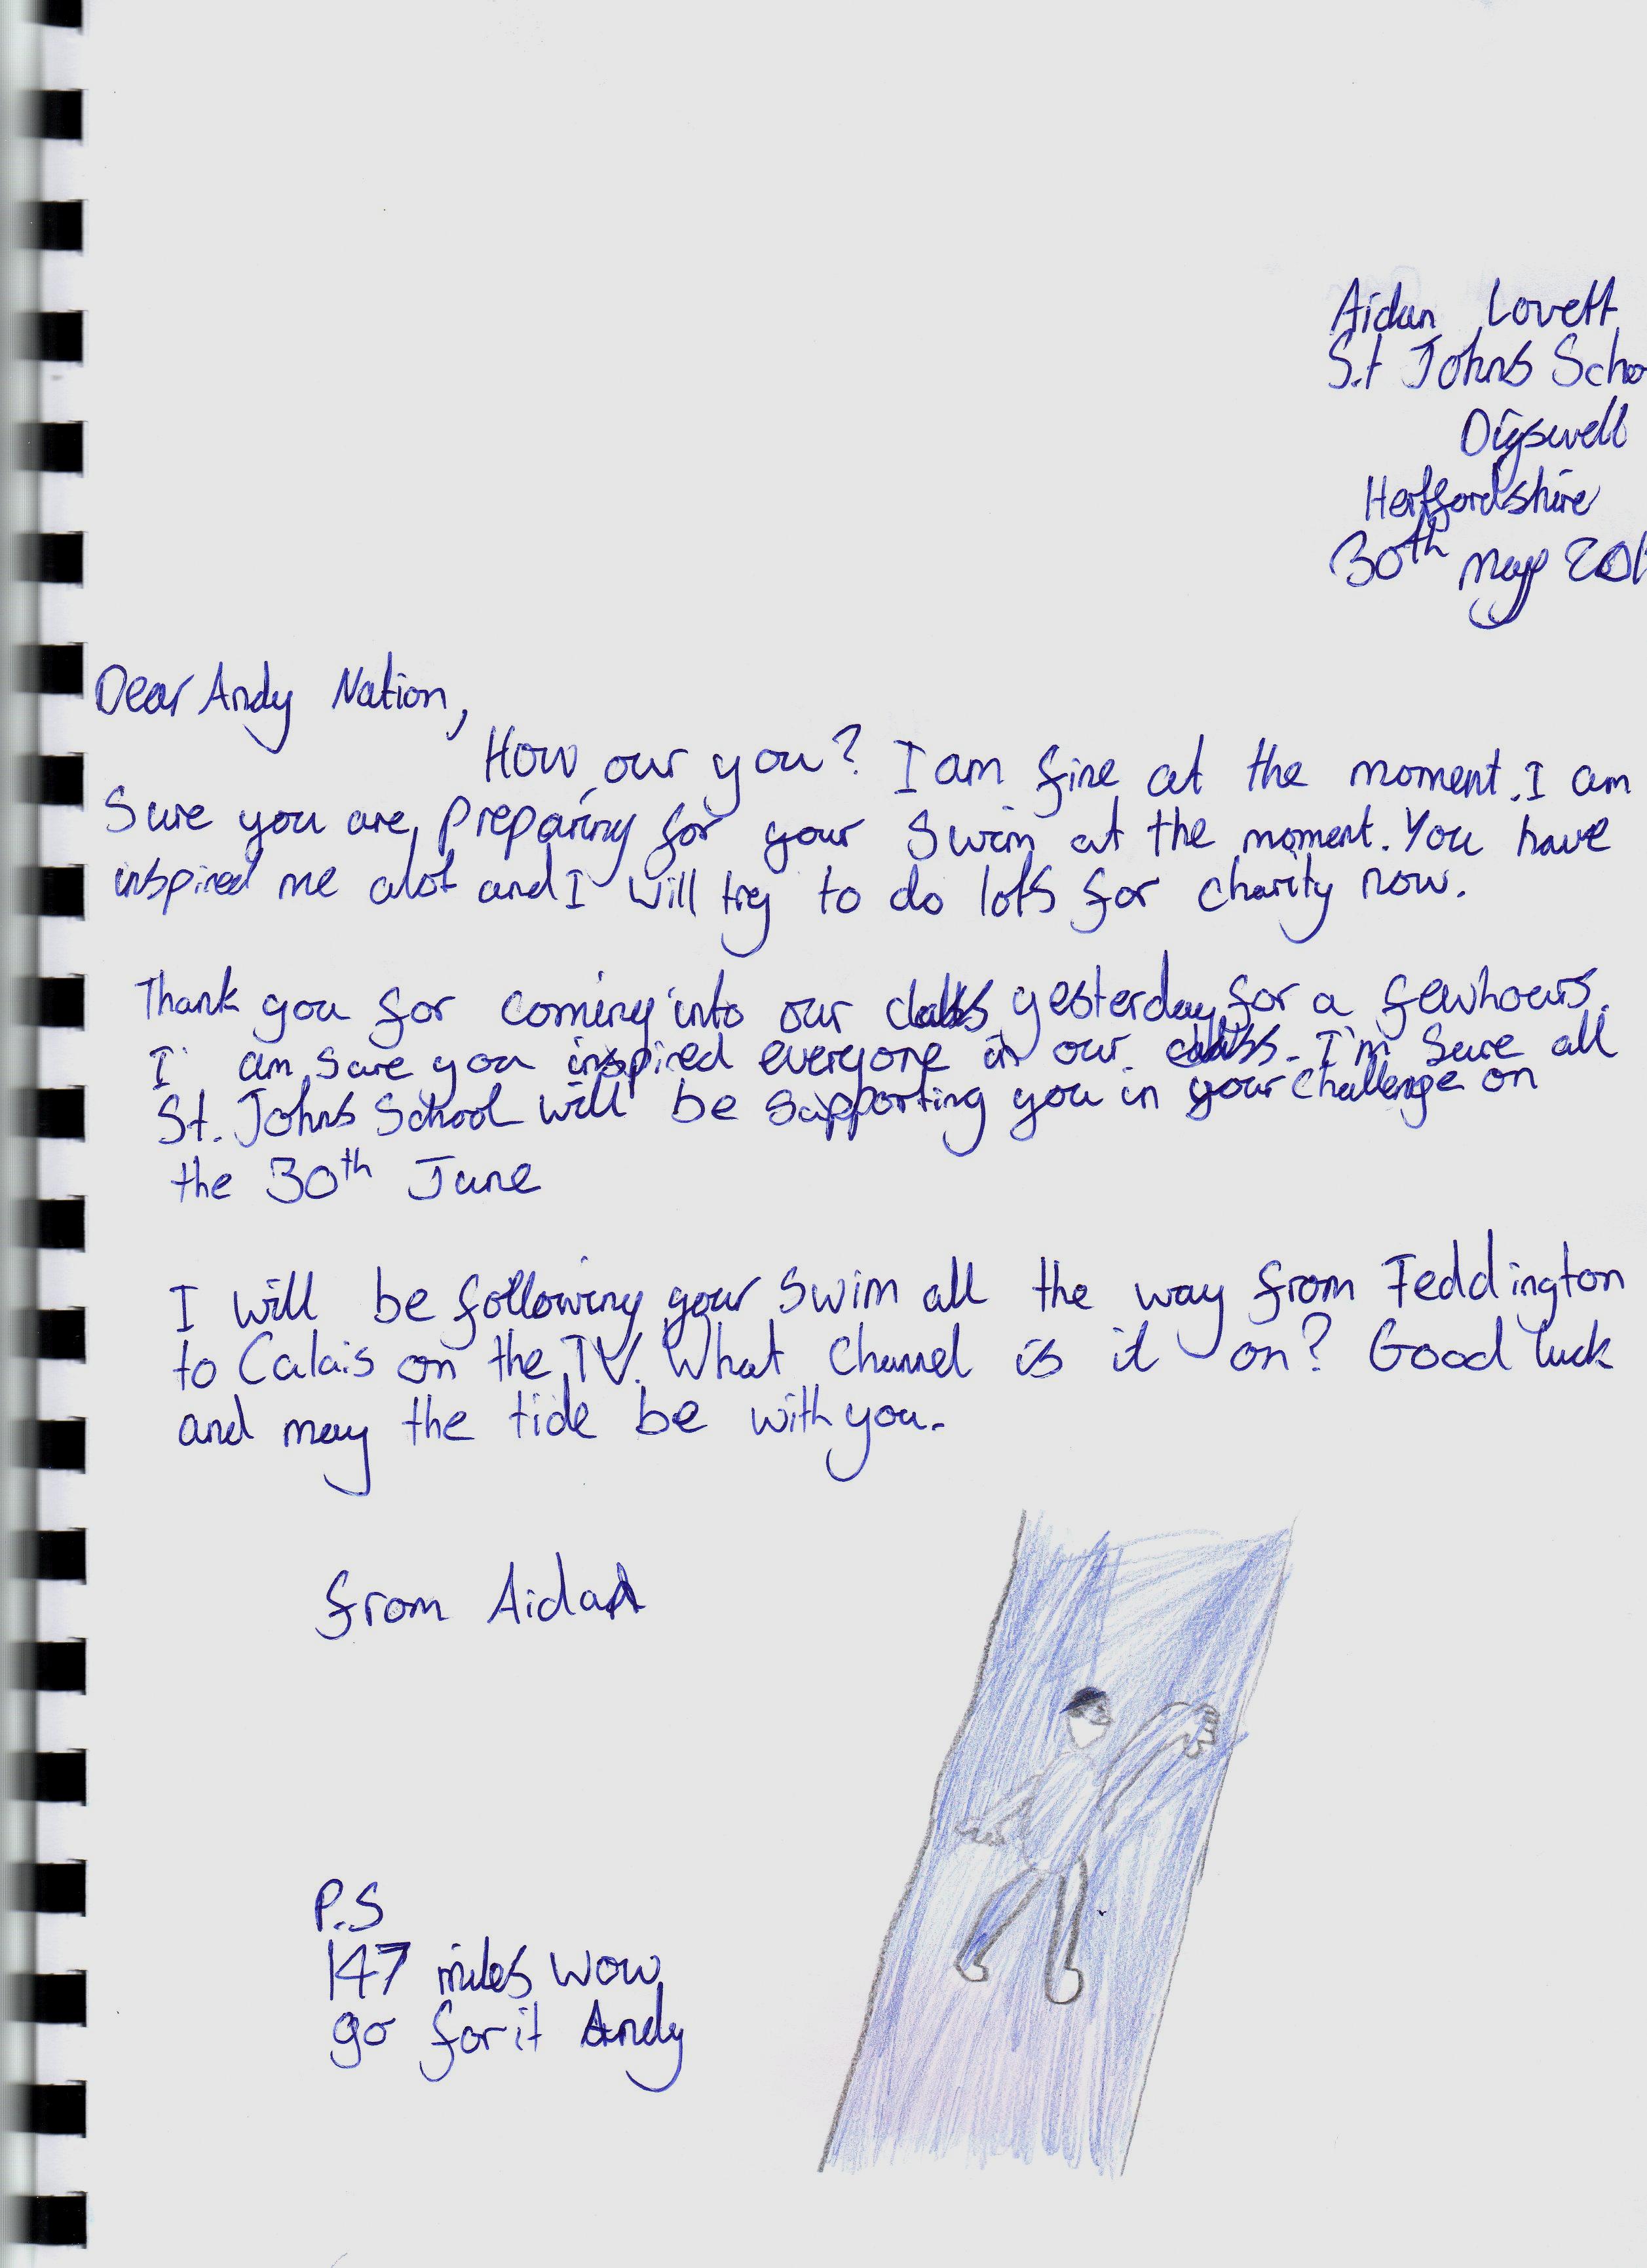 Aidan Lovett
S.t Johns Scho
Digswell
Hertfordshire
30th May 201
Dear Andy Nation,
How our you? I am fine at the moment. I am
Sure you are preparing for your Swim at the moment. You have
inspired me alot and I will try to do lots for charity now.
Thank you for coming into our class yesterday for a few hours.
I am sure you inspired everyone in our class. I'm Sure all
St. Johns School will be supporting you in your challenge on
the 30th June
I will be following your Swim all the way from Teddington
to Calais on the TV. What Channel is it on? Good luck
and may the tide be with you.
from Aidan
P.S
147 miles wow
go for it Andy